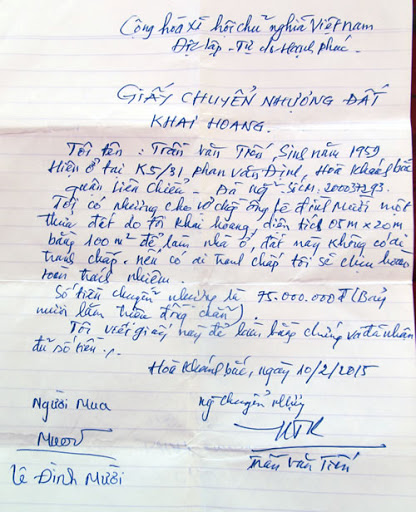 Cộng hóa xã hội chủ nghĩa Việt nam
Độc lập - Tự do Hạnh phúc.
GIẤY CHUYỂN NHƯỢNG ĐẤT
KHAI HOANG.
Tôi tên : Trần Văn Tiến, Sinh năm 1959
Hiện ở tại K5/31, phan văn Định, Hoà Khánh bắc
quận Liên Chiểu - Đà Nẵng SCM: 200037293.
Tôi có nhượng cho vợ chồng ông Lê đình Mười một
thửa đất do tôi khai hoang, diện tích 05m x 20m
bằng 100 m² để làm nhà ở, đất này không có ai
tranh chấp. nếu có ai tranh chấp tôi sẽ chịu hoàn
toàn trách nhiệm.
Số tiền chuyển nhượng là 75.000.000đ (Bảy
mươi lăm triệu đồng chẵn).
Tôi viết giấy này để làm bằng chứng và đã nhận
đủ số tiền./.
Hoà Khánh bắc, ngày 10/2/2015
Người Mua
chuyển nhượng
Mười
Lê Đình Mười
Trần Văn Tiến